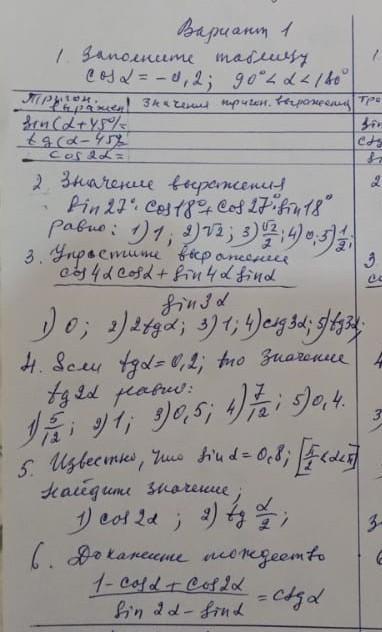 Вариант 1
1. Заполните таблицу
cosα = -0,2; 90°<α<180°
Тригон. выражен Значения тригон. выражения
sin(α+45°)=
tg(α-45°)=
cos2α=
2. Значение выражения
sin27°·cos18°+cos27°·sin18°
равно: 1) 1; 2) √2; 3) √2/2; 4) 0; 5) 1/2;
3. Упростите выражение
cos4α cosα + sin4α sinα
sin3α
1) 0; 2) 2tgα; 3) 1; 4) ctg3α; 5) tg3α;
4. Если tgα=0,2; то значение
tg2α равно:
1) 5/12; 2) 1; 3) 0,5; 4) 7/12; 5) 0,4.
5. Известно, что sinα=0,8;
Найдите значение;
1) cos2α; 2) tg α/2;
6. Докажите тождество
1-cosα+cos2α
sin2α-sinα = ctgα